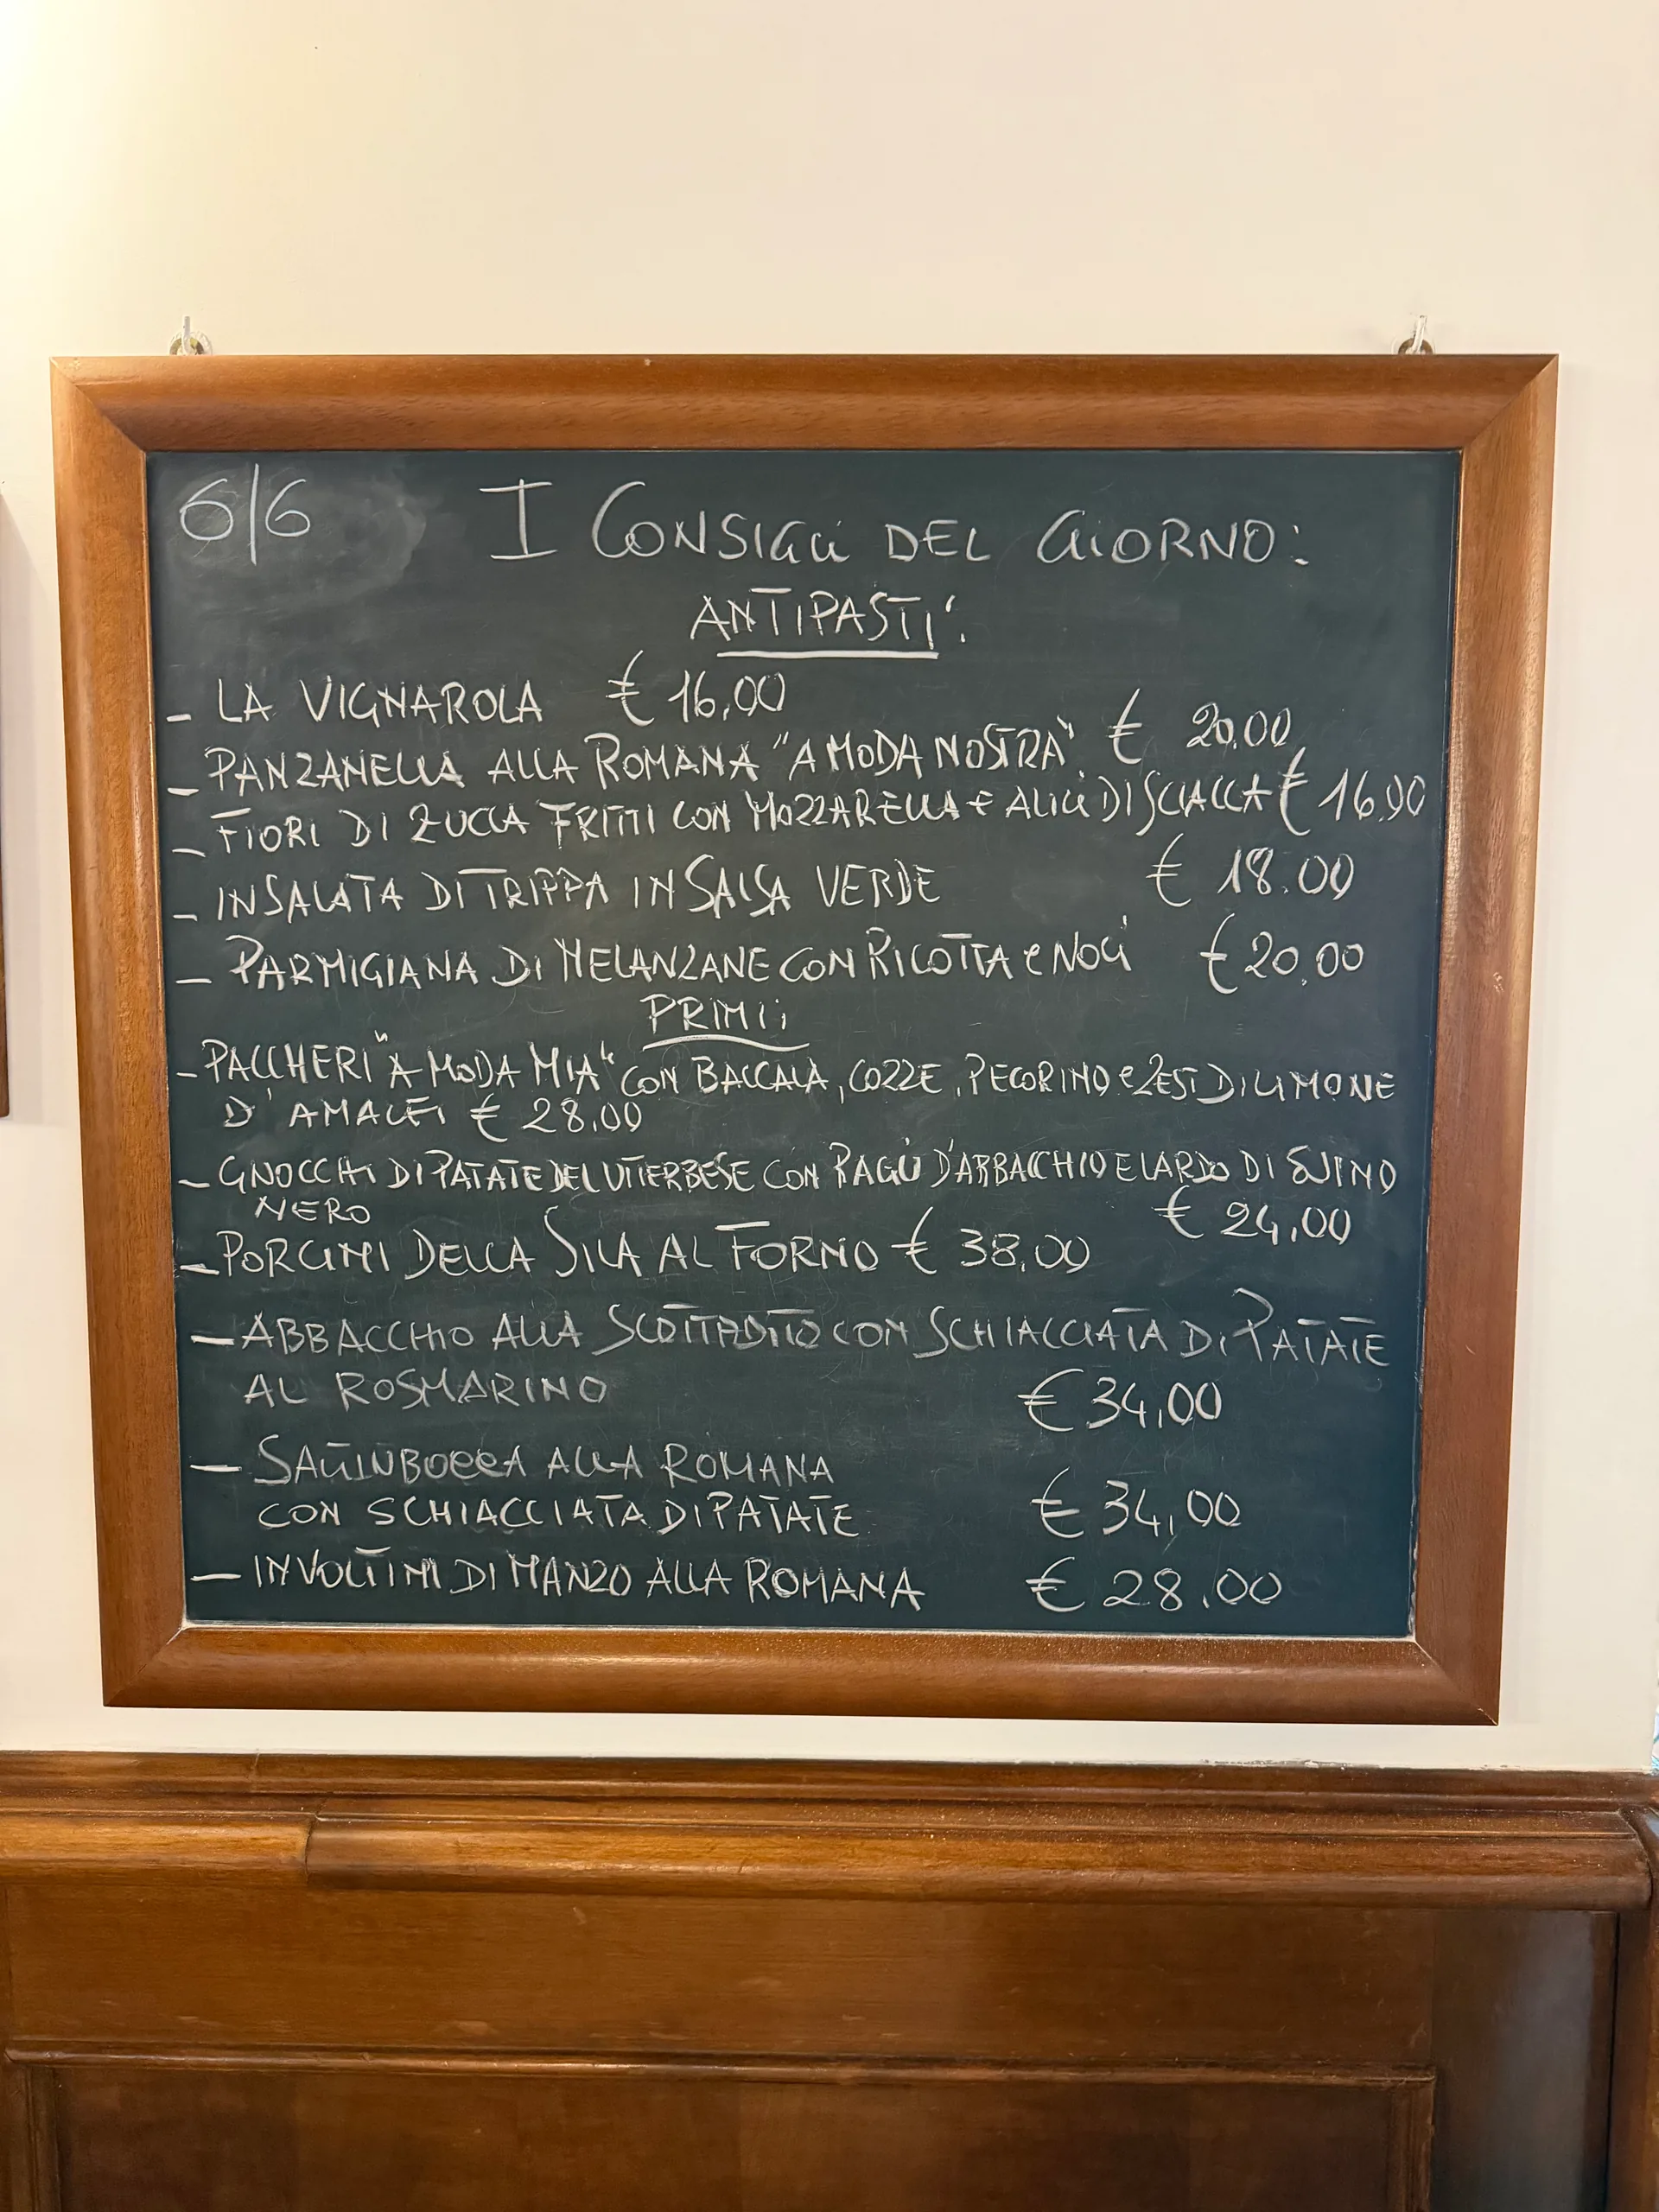 6/6 I CONSIGLI DEL GIORNO:
ANTIPASTI:
- LA VIGNAROLA € 16,00
- PANZANELLA ALLA ROMANA "A MODA NOSTRA" € 20,00
- FIORI DI ZUCCA FRITTI CON MOZZARELLA E ALICI DI SCIACCA € 16,00
- INSALATA DI TRIPPA IN SALSA VERDE € 18.00
- PARMIGIANA DI MELANZANE CON RICOTTA e NOCI € 20,00
PRIMI:
- PACCHERI "A MODA MIA" CON BACCALÀ, COZZE, PECORINO e ZEST DI LIMONE
D'AMALFI € 28,00
- GNOCCHI DI PATATE DEL VITERBESE CON RAGÙ D'ABBACCHIO E LARDO DI SUINO
NERO € 24,00
- PORCINI DELLA SILA AL FORNO € 38,00
- ABBACCHIO ALLA SCOTTADITO CON SCHIACCIATA DI PATATE
AL ROSMARINO € 34,00
- SALTINBOCCA ALLA ROMANA
CON SCHIACCIATA DI PATATE € 34,00
- INVOLTINI DI MANZO ALLA ROMANA € 28,00